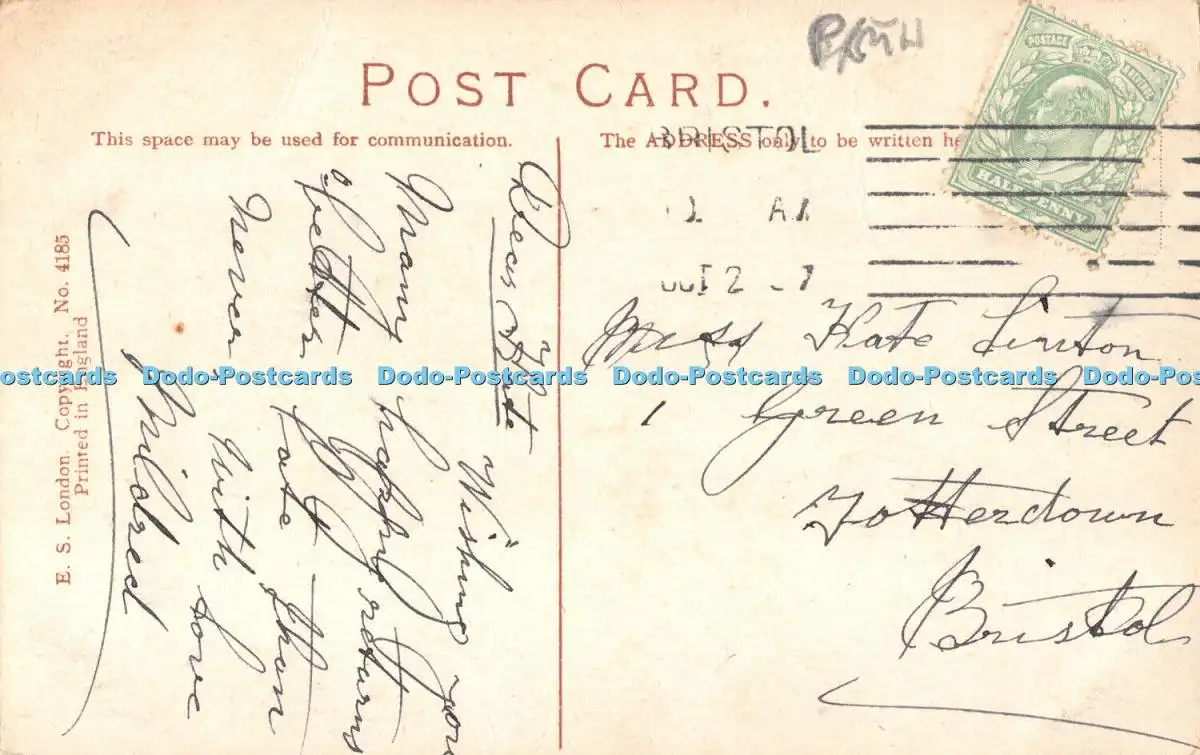 POST CARD.
This space may be used for communication.
The ADDRESS only to be written
BRISTOL
OCT 2 07
POSTAGE
HALFPENNY
Dear Kate
Wishing you
Many happy returns
of
better late than
never, with love
Mildred
Miss Kate Linton
1 Green Street
Totterdown
Bristol
E. S. London. Copyright. No. 4185
Printed in England
Dodo-Postcards Dodo-Postcards Dodo-Postcards Dodo-Postcards Dodo-Postcards Dodo-Postcards